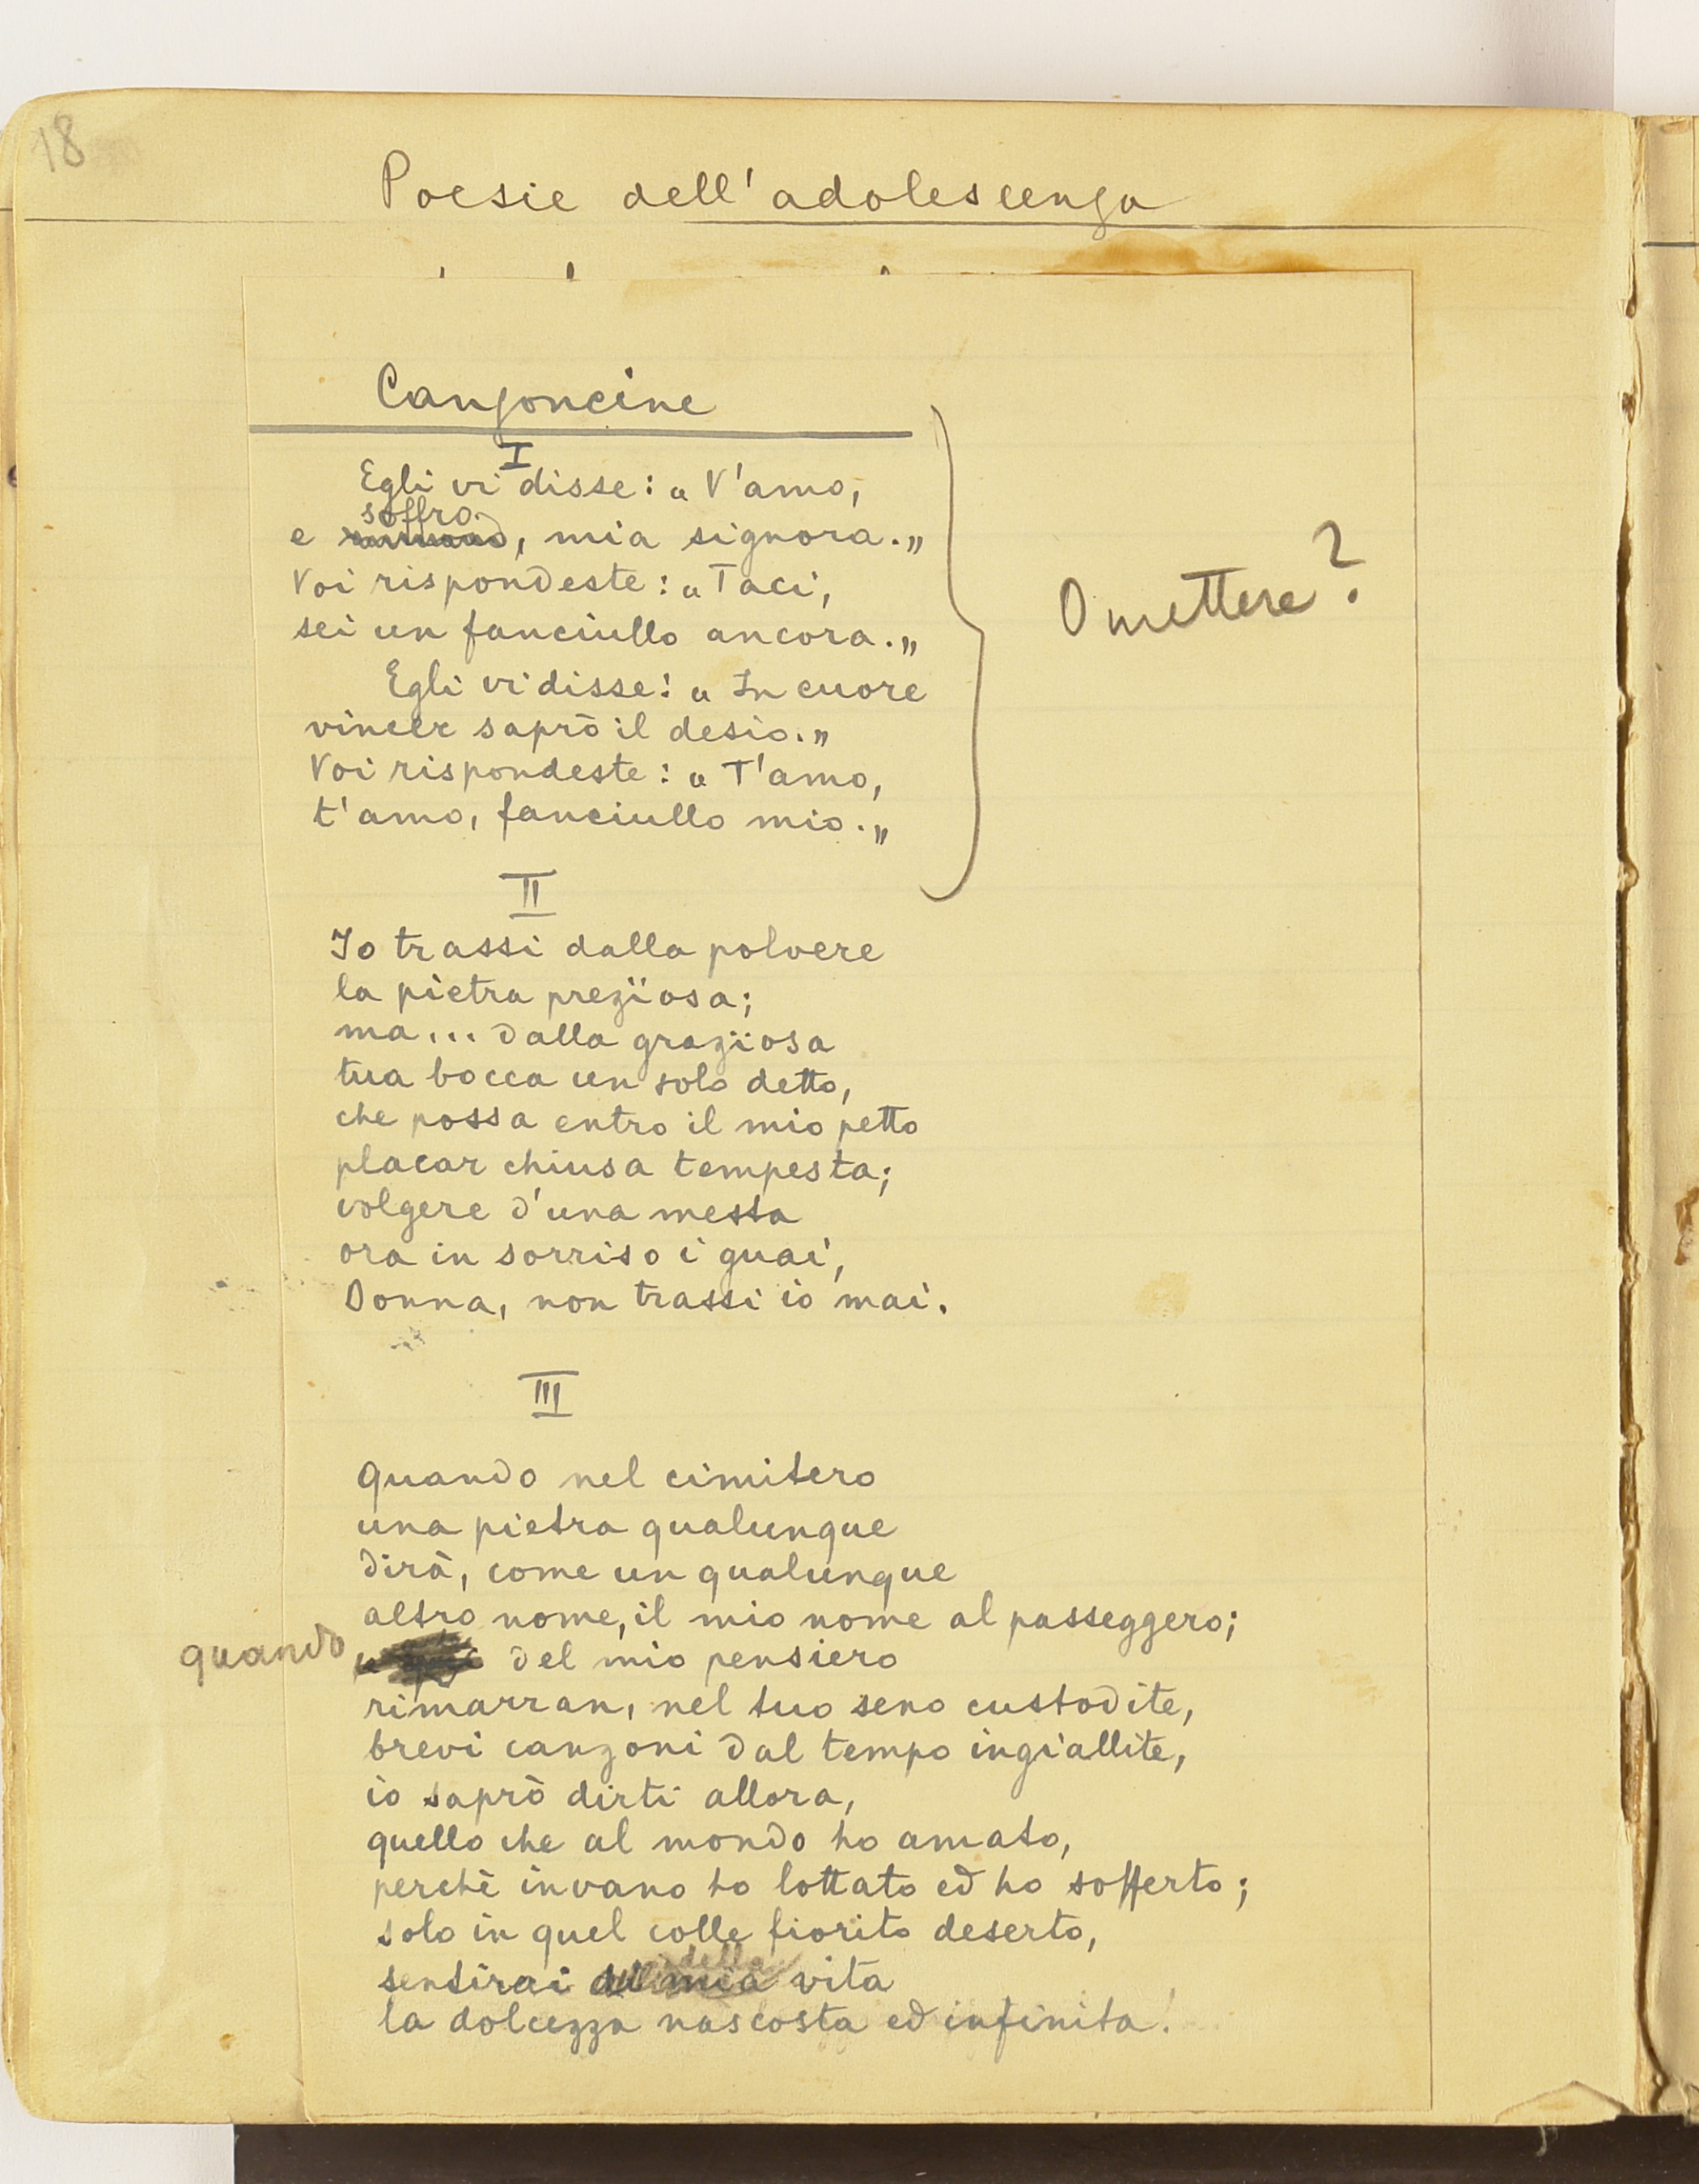 18
Poesie dell'adolescenza
Canzoncine
I
Egli vi disse: „ V'amo,
soffro
e , mia signora.„
Voi rispondeste: „ Taci,
sei un fanciullo ancora.„
Egli vi disse: „ In cuore
vincer saprò il desio.„
Voi rispondeste: „ T'amo,
t'amo, fanciullo mio.„
Omettere?
II
Io trassi dalla polvere
la pietra prezïosa;
ma... dalla grazïosa
tua bocca un solo detto,
che possa entro il mio petto
placar chiusa tempesta;
volgere d'una mesta
ora in sorriso i guai,
Donna, non trassi io mai.
III
Quando nel cimitero
una pietra qualunque
dirà, come un qualunque
altro nome, il mio nome al passeggero;
quando del mio pensiero
rimarran, nel tuo seno custodite,
brevi canzoni dal tempo ingiallite,
io saprò dirti allora,
quello che al mondo ho amato,
perchè invano ho lottato ed ho sofferto;
solo in quel colle fiorito deserto,
della
sentirai mia vita
la dolcezza nascosta ed infinita!